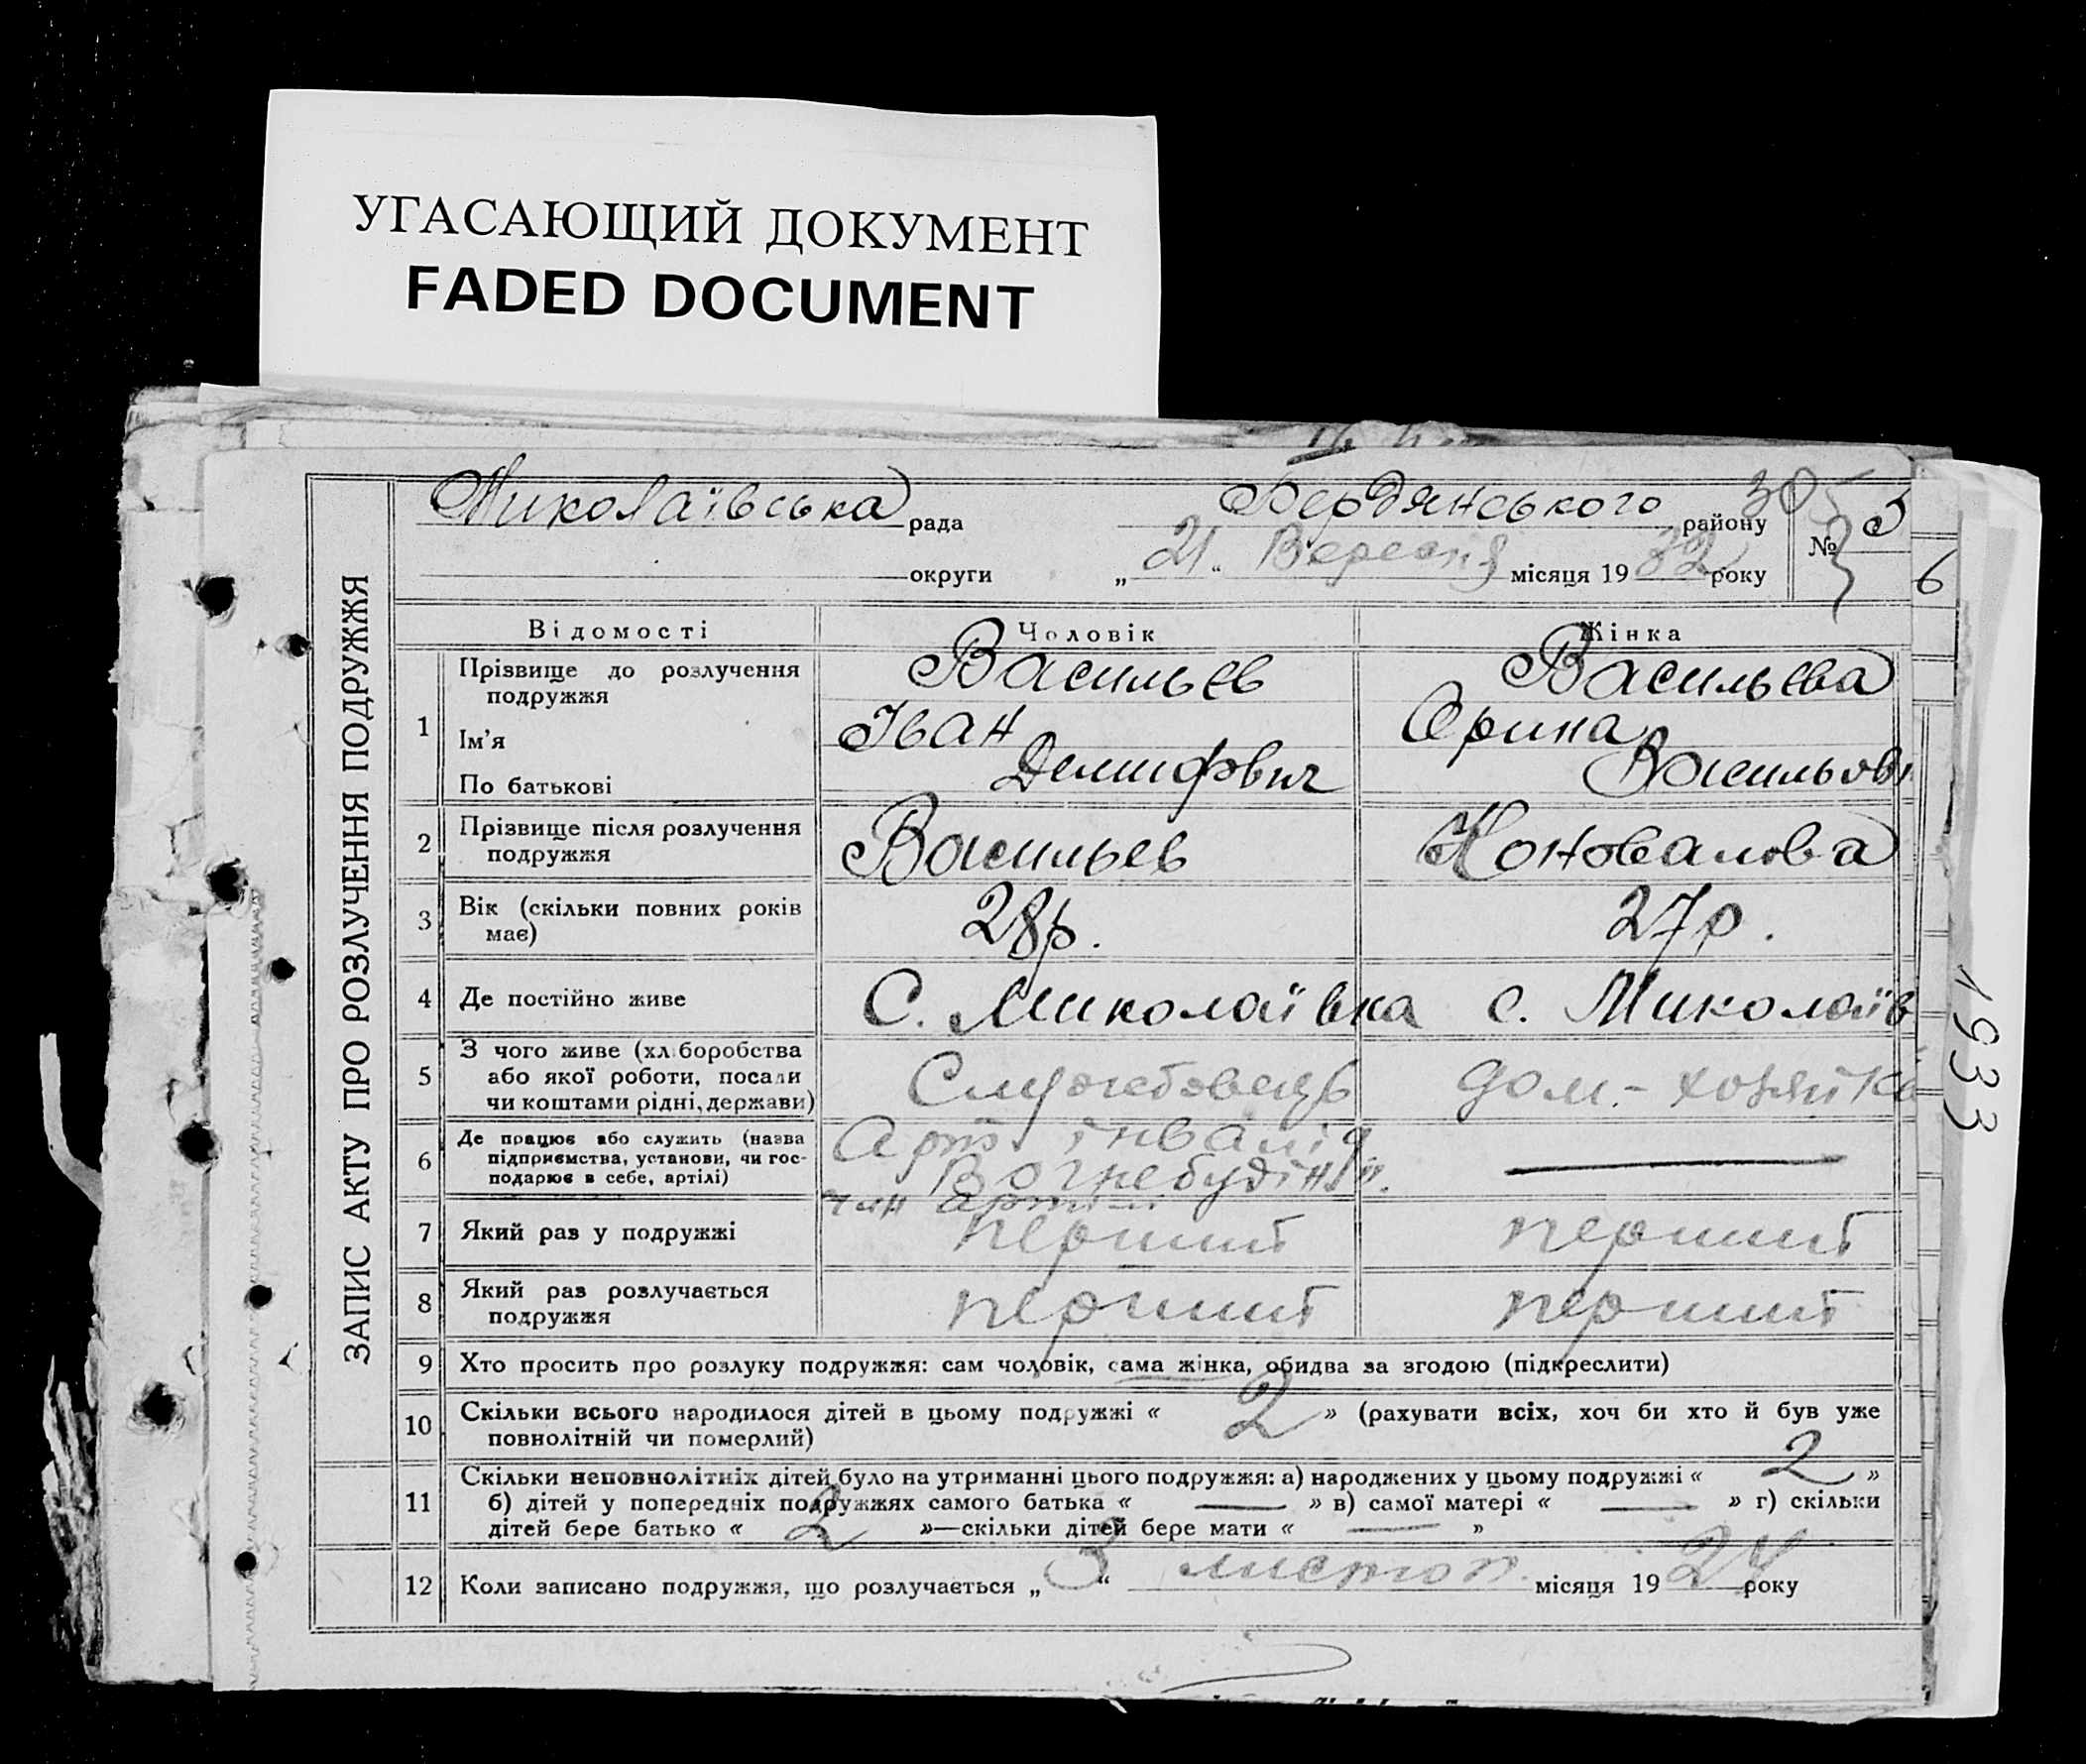 УГАСАЮЩИЙ ДОКУМЕНТ
FADED DOCUMENT
ЗАПИС АКТУ ПРО РОЗЛУЧЕННЯ ПОДРУЖЖЯ
Миколаївська рада Бердянського району 305
№ 5
округи „21“ Вересня місяця 1932 року
6
Відомості Чоловік Жінка
1 Прізвище до розлучення подружжя Васильєв Васильєва
Ім'я Іван Орина
По батькові Васильов
2 Прізвище після розлучення подружжя Васильев Коновалова
3 Вік (скільки повних років має) 28р. 27р.
4 Де постійно живе С. Миколаївка с. Миколаїв
5 З чого живе (хліборобства або якої роботи, посади чи коштами рідні, держави) Службовець дом.-хозяйка
6 Де працює або служить (назва підприємства, установи, чи господарює в себе, артілі) Арт. інвалід —
член артілі
7 Який раз у подружжі перший перший
8 Який раз розлучається подружжя перший перший
9 Хто просить про розлуку подружжя: сам чоловік, сама жінка, обидва за згодою (підкреслити)
10 Скільки всього народилося дітей в цьому подружжі « 2 » (рахувати всіх, хоч би хто й був уже
повнолітній чи померлий)
11 Скільки неповнолітніх дітей було на утриманні цього подружжя: а) народжених у цьому подружжі « 2 »
б) дітей у попередніх подружжях самого батька « — » в) самої матері « — » г) скільки
дітей бере батько « 2 »—скільки дітей бере мати « — »
12 Коли записано подружжя, що розлучається „3“ листоп. місяця 1924 року
1933